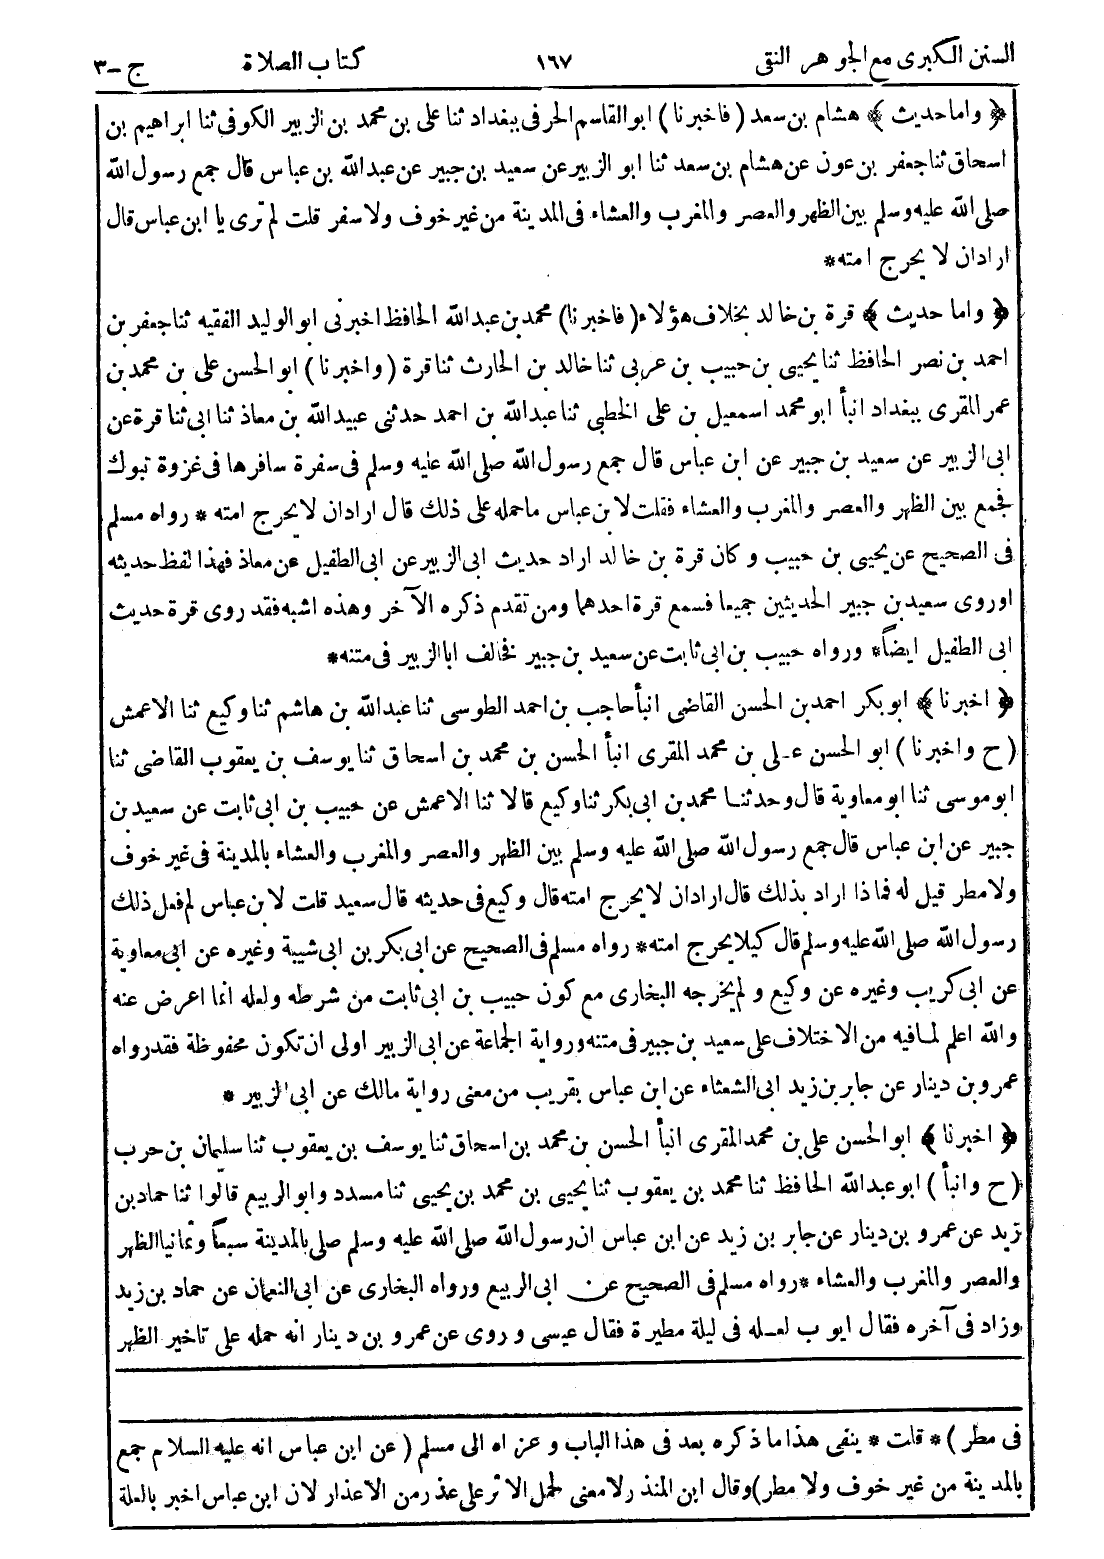 السنن الكبرى مع الجوهر النقى ١٦٧ كتاب الصلاة ج-٣
﴿ واما حديث ﴾ هشام بن سعد ( فاخبرنا ) ابو القاسم الحرفى ببغداد ثنا على بن محمد بن الزبير الكوفى ثنا ابراهيم بن
اسحاق ثنا جعفر بن عون عن هشام بن سعد ثنا ابو الزبير عن سعيد بن جبير عن عبدالله بن عباس قال جمع رسول الله
صلى الله عليه وسلم بين الظهر والعصر والمغرب والعشاء فى المدينة من غير خوف ولا سفر قلت لم ترى يا ابن عباس قال
اراد ان لا يحرج امته*
﴿ واما حديث ﴾ قرة بن خالد بخلاف هؤلاء ( فاخبرنا) محمد بن عبدالله الحافظ اخبرنى ابو الوليد الفقيه ثنا جعفر بن
احمد بن نصر الحافظ ثنا يحيى بن حبيب بن عربى ثنا خالد بن الحارث ثنا قرة ( واخبرنا ) ابو الحسن على بن محمد بن
عمر المقرى ببغداد انبأ ابو محمد اسمعيل بن على الخطبى ثنا عبدالله بن احمد حدثنى عبيدالله بن معاذ ثنا ابى ثنا قرة عن
ابى الزبير عن سعيد بن جبير عن ابن عباس قال جمع رسول الله صلى الله عليه وسلم فى سفرة سافرها فى غزوة تبوك
فجمع بين الظهر والعصر والمغرب والعشاء فقلت لابن عباس ما حمله على ذلك قال اراد ان لا يحرج امته * رواه مسلم
فى الصحيح عن يحيى بن حبيب و كان قرة بن خالد اراد حديث ابى الزبير عن ابى الطفيل عن معاذ فهذا لفظ حديثه
اوروى سعيد بن جبير الحديثين جميعا فسمع قرة احدهما ومن تقدم ذكره الآخر وهذه اشبه فقد روى قرة حديث
ابى الطفيل ايضاً* ورواه حبيب بن ابى ثابت عن سعيد بن جبير فخالف ابا الزبير فى متنه*
﴿ اخبرنا ﴾ ابو بكر احمد بن الحسن القاضى انبأ حاجب بن احمد الطوسى ثنا عبدالله بن هاشم ثنا وكيع ثنا الاعمش
( ح واخبرنا ) ابو الحسن على بن محمد المقرى انبأ الحسن بن محمد بن اسحاق ثنا يوسف بن يعقوب القاضى ثنا
ابو موسى ثنا ابو معاوية قال وحدثنا محمد بن ابى بكر ثنا وكيع قالا ثنا الاعمش عن حبيب بن ابى ثابت عن سعيد بن
جبير عن ابن عباس قال جمع رسول الله صلى الله عليه وسلم بين الظهر والعصر والمغرب والعشاء بالمدينة فى غير خوف
ولا مطر قيل له فماذا اراد بذلك قال اراد ان لا يحرج امته قال وكيع فى حديثه قال سعيد قلت لابن عباس لم فعل ذلك
رسول الله صلى الله عليه وسلم قال كيلا يحرج امته* رواه مسلم فى الصحيح عن ابى بكر بن ابى شيبة وغيره عن ابى معاوية
عن ابى كريب وغيره عن وكيع و لم يخرجه البخارى مع كون حبيب بن ابى ثابت من شرطه ولعله انما اعرض عنه
والله اعلم لما فيه من الاختلاف على سعيد بن جبير فى متنه ورواية الجماعة عن ابى الزبير اولى ان تكون محفوظة فقد رواه
عمرو بن دينار عن جابر بن زيد ابى الشعثاء عن ابن عباس بقريب من معنى رواية مالك عن ابى الزبير *
﴿ اخبرنا ﴾ ابو الحسن على بن محمد المقرى انبأ الحسن بن محمد بن اسحاق ثنا يوسف بن يعقوب ثنا سليمان بن حرب
( ح وانبأ ) ابو عبدالله الحافظ ثنا محمد بن يعقوب ثنا يحيى بن محمد بن يحيى ثنا مسدد وابو الربيع قالوا ثنا حماد بن
زيد عن عمرو بن دينار عن جابر بن زيد عن ابن عباس ان رسول الله صلى الله عليه وسلم صلى بالمدينة سبعاً وثمانيا الظهر
والعصر والمغرب والعشاء *رواه مسلم فى الصحيح عن ابى الربيع ورواه البخارى عن ابى النعمان عن حماد بن زيد
وزاد فى آخره فقال ايوب لعله فى ليلة مطيرة فقال عيسى و روى عن عمرو بن دينار انه حمله على تاخير الظهر
فى مطر )* قلت * ينفى هذا ما ذكره بعد فى هذا الباب و عزاه الى مسلم ( عن ابن عباس انه عليه السلام جمع
بالمدينة من غير خوف ولا مطر )وقال ابن المنذر لا معنى لحمل الاثر على عذر من الاعذار لان ابن عباس اخبر بالعلة